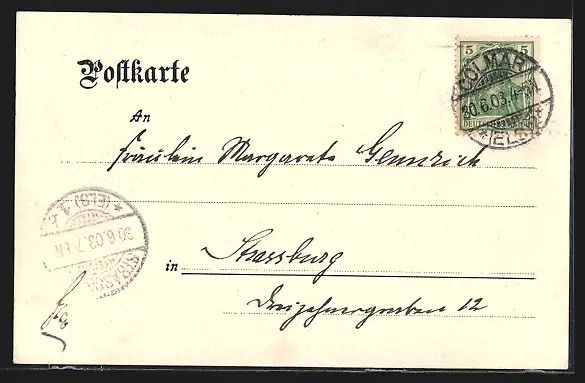 Postkarte
5 5
COLMAR
30.6.03. 4-5 N
DEUTSCHES REICH
* (ELS) *
An
Fräulein Margarete Gennrich
* (ELS) 4
30.6.03. 7-8 N
STRASSBURG
in Strassburg
Dreizehnergraben 12